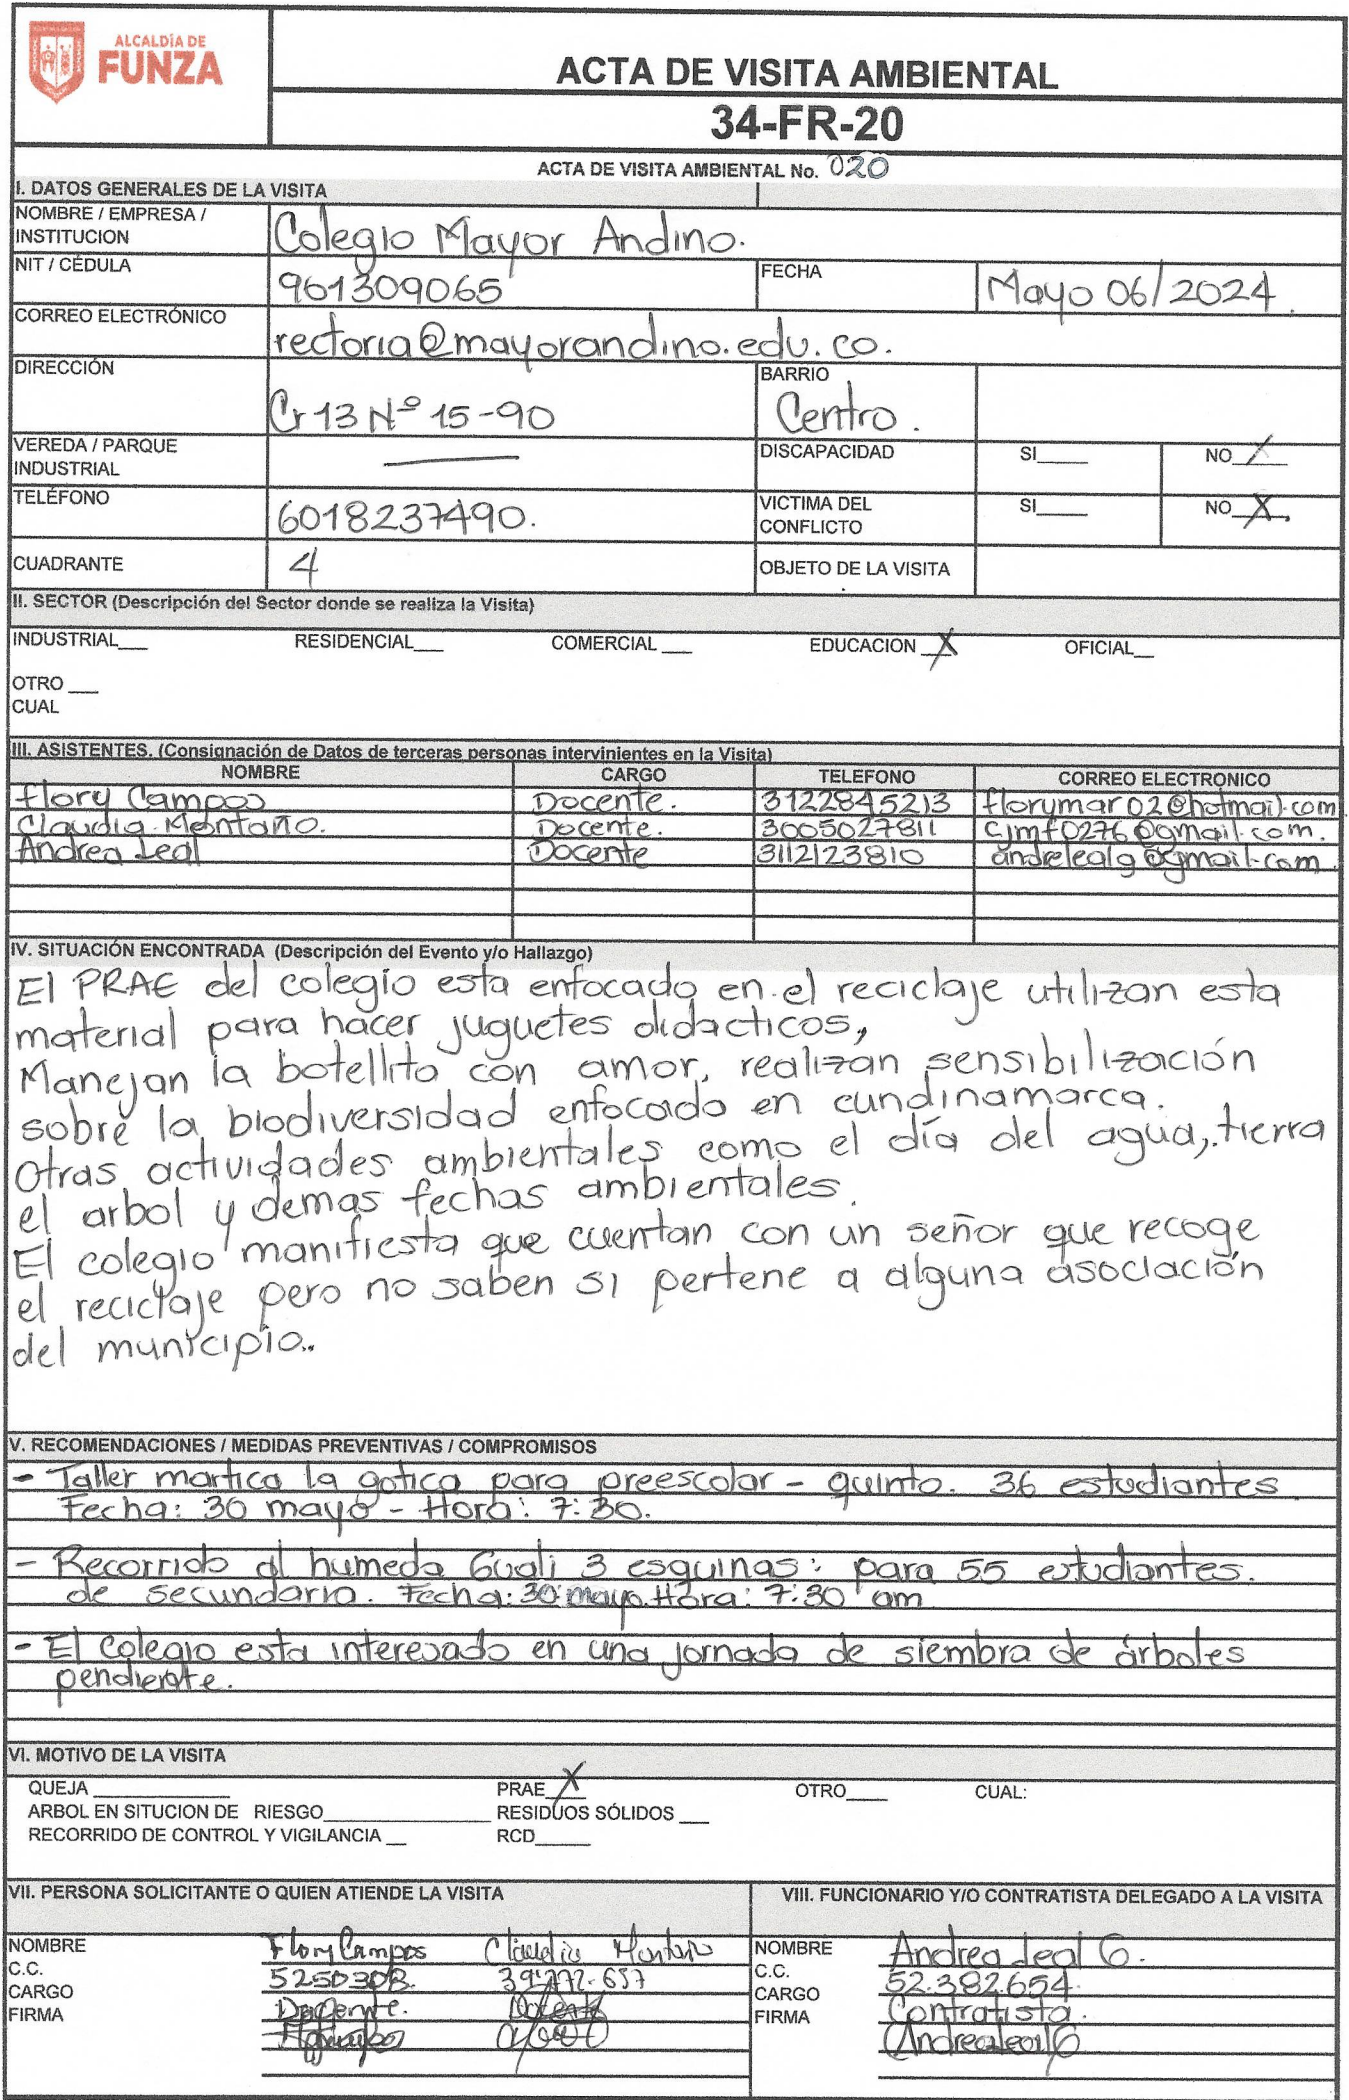 ALCALDÍA DE
FUNZA
ACTA DE VISITA AMBIENTAL
34-FR-20
ACTA DE VISITA AMBIENTAL No. 020
I. DATOS GENERALES DE LA VISITA
NOMBRE / EMPRESA / INSTITUCION Colegio Mayor Andino.
NIT / CÉDULA 901309065 FECHA Mayo 06/2024.
CORREO ELECTRÓNICO rectoria@mayorandino.edu.co.
DIRECCIÓN Cr 13 Nº 15-90 BARRIO Centro.
VEREDA / PARQUE INDUSTRIAL — DISCAPACIDAD SI____ NO X
TELÉFONO 6018237490. VICTIMA DEL CONFLICTO SI____ NO X.
CUADRANTE 4 OBJETO DE LA VISITA
II. SECTOR (Descripción del Sector donde se realiza la Visita)
INDUSTRIAL___ RESIDENCIAL___ COMERCIAL ___ EDUCACION X OFICIAL__
OTRO ___
CUAL
III. ASISTENTES. (Consignación de Datos de terceras personas intervinientes en la Visita)
NOMBRE CARGO TELEFONO CORREO ELECTRONICO
Flory Campos Docente. 3122845213 florymar02@hotmail.com
Claudia Montaño. Docente. 3005027811 cjmf0276@gmail.com.
Andrea Leal Docente 3112123810 andrelealg@gmail.com
IV. SITUACIÓN ENCONTRADA (Descripción del Evento y/o Hallazgo)
El PRAE del colegio esta enfocado en el reciclaje utilizan esta
material para hacer juguetes didacticos,
Manejan la botellita con amor, realizan sensibilización
sobre la biodiversidad enfocada en cundinamarca.
Otras actividades ambientales como el día del agua, tierra
el arbol y demas fechas ambientales.
El colegio manifiesta que cuentan con un señor que recoge
el reciclaje pero no saben si pertene a alguna asociación
del municipio..
V. RECOMENDACIONES / MEDIDAS PREVENTIVAS / COMPROMISOS
- Taller martica la gotica para preescolar - quinto. 36 estudiantes
Fecha: 30 mayo - Hora: 7:30.
- Recorrido al humeda Guali 3 esquinas: para 55 estudiantes.
de secundaria. Fecha: 30 mayo. Hora: 7:30 am
- El colegio esta interesado en una jornada de siembra de árboles
pendiente.
VI. MOTIVO DE LA VISITA
QUEJA ____________ PRAE X OTRO____ CUAL:
ARBOL EN SITUCION DE RIESGO______________ RESIDUOS SÓLIDOS ___
RECORRIDO DE CONTROL Y VIGILANCIA __ RCD_____
VII. PERSONA SOLICITANTE O QUIEN ATIENDE LA VISITA VIII. FUNCIONARIO Y/O CONTRATISTA DELEGADO A LA VISITA
NOMBRE Flory Campos Claudia Montaño NOMBRE Andrea Leal G.
C.C. 5250308 C.C. 52.382.654.
CARGO Docente. Docente CARGO Contratista.
FIRMA FIRMA Andrea Leal G